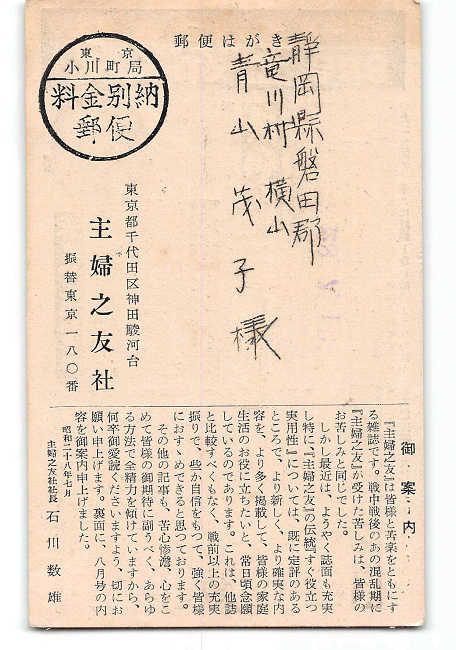 郵便はがき
東京
小川町局
料金別納
郵便
靜岡縣磐田郡
竜川村横山
青山茂子様
東京都千代田区神田駿河台
主婦之友社
振替東京一八〇番
御案内
『主婦之友』は皆様と苦楽をともにす
る雑誌です。戦中戦後のあの混乱期に
『主婦之友』が受けた苦しみは、皆様の
お苦しみと同じでした。
しかし最近は、ようやく誌面も充実
し特に『主婦之友』の伝統〝すぐ役立つ
実用性〟については、既に定評のある
ところで、より新しく、より確実な内
容を、より多く掲載して、皆様の家庭
生活のお役に立ちたいと、常日頃念願
しているのであります。これは、他誌
と比較すべくもなく、戦前以上の充実
振りで、些か自信をもつて、強く皆様
におすゝめできると思つております。
その他の記事も、苦心惨澹、心をこ
めて皆様の御期待に副うべく、あらゆ
る方法で全精力を傾けていますから、
何卒御愛読くださいますよう、切にお
願い申上げます。裏面に、八月号の内
容を御案内申上げました。
昭和二十八年七月
主婦之友社社長 石川数雄